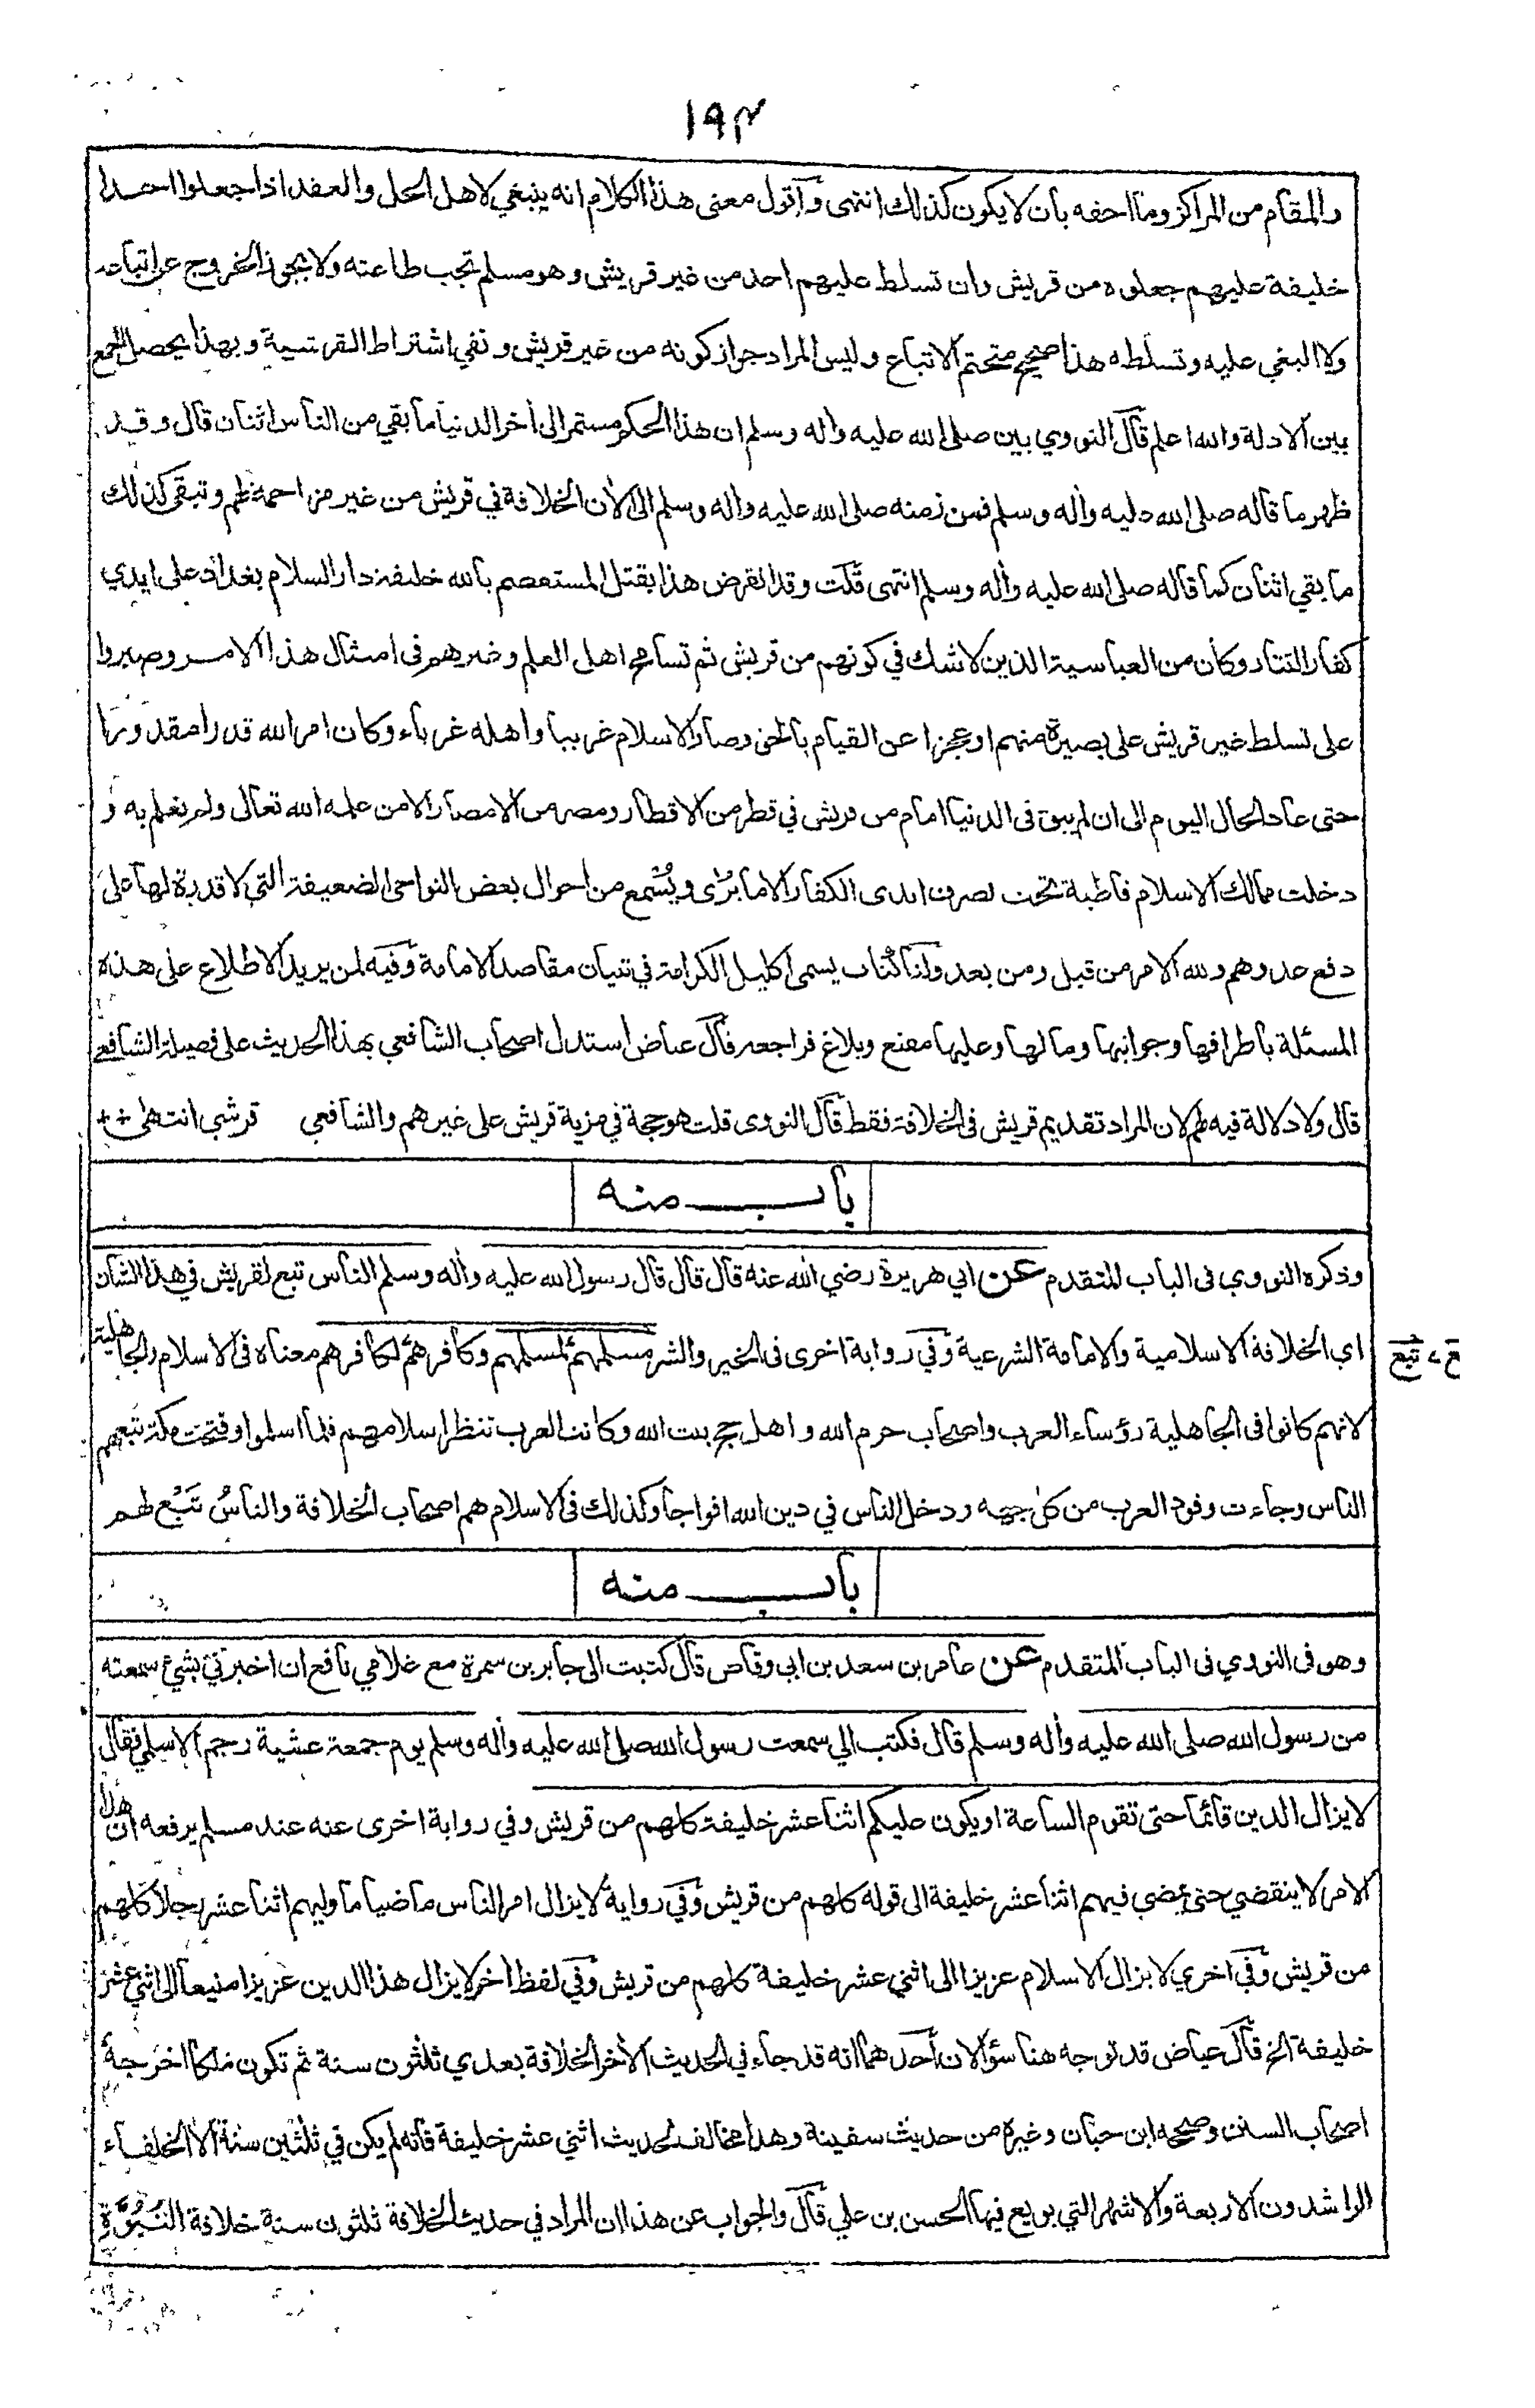 ١٩٣
والمقام من المراكز وما احقه بان لا يكون كذلك انتهى واقول معنى هذا الكلام انه ينبغي لاهل الحل والعقد اذا جعلوا احدا
خليفة عليهم جعلوه من قريش وان تسلط عليهم احد من غير قريش وهو مسلم تجب طاعته ولا يجوز الخروج عن اتباعه
ولا البغي عليه وتسلطه هذا صحيح متحتم الاتباع وليس المراد جواز كونه من غير قريش ونفي اشتراط القرشية وبهذا يحصل الجمع
بين الادلة والله اعلم قال النووي بين صلى الله عليه واله وسلم ان هذا الحكم مستمر الى أخر الدنيا ما بقي من الناس اثنان قال وقد
ظهر ما قاله صلى الله عليه واله وسلم فمن زمنه صلى الله عليه واله وسلم الى الأن الخلافة في قريش من غير مزاحمة لهم وتبقى كذلك
ما بقي اثنان كما قاله صلى الله عليه واله وسلم انتهى قلت وقد انقرض هذا بقتل المستعصم بالله خليفة دار السلام بغداد على ايدي
كفار التتار وكان من العباسية الذين لا شك في كونهم من قريش ثم تسامح اهل العلم وغيرهم في امثال هذا الامر وصبروا
على تسلط غير قريش على بصيرة منهم او عجزا عن القيام بالحق وصار الاسلام غريبا واهله غرباء وكان امر الله قدرا مقدورا
حتى عاد الحال اليوم الى ان لم يبق في الدنيا امام من قريش في قطر من الاقطار ومصر من الامصار الا من علمه الله تعالى ولم نعلم به و
دخلت ممالك الاسلام قاطبة تحت تصرف ايدى الكفار الا ما يُرٰى ويُسْمع من احوال بعض النواحى الضعيفة التي لا قدرة لها على
دفع عدوهم ولله الامر من قبل ومن بعد ولنا كتاب يسمى اكليل الكرامة في تبيان مقاصد الامامة وفيه لمن يريد الاطلاع على هذه
المسئلة باطرافها وجوانبها وما لها وعليها مقنع وبلاغ فراجعه قال عياض استدل اصحاب الشافعي بهذا الحديث على فضيلة الشافعي
قال ولا دلالة فيه لهم لان المراد تقديم قريش في الخلافة فقط قال النووى قلت هو حجة في مزية قريش على غيرهم والشافعي قرشي انتهى
باب منه
وذكره النووي في الباب المتقدم عن ابي هريرة رضي الله عنه قال قال قال رسول الله عليه واله وسلم الناس تبع لقريش في هذا الشان
اي الخلافة الاسلامية والامامة الشرعية وفي رواية اخرى في الخير والشر مسلمهم لمسلمهم وكافرهم لكافرهم معناه في الاسلام والجاهلية
تبع
لانهم كانوا في الجاهلية رؤساء العرب واصحاب حرم الله واهل حج بيت الله وكانت العرب تنظر اسلامهم فلما اسلموا وفتحت مكة تبعهم
الناس وجاءت وفود العرب من كل جهة ودخل الناس في دين الله افواجا وكذلك في الاسلام هم اصحاب الخلافة والناسُ تَبَعٌ لهم
باب منه
وهو في النووي في الباب المتقدم عن عامر بن سعد بن ابي وقاص قال كتبت الى جابر بن سمرة مع غلامي نافع ان اخبرني بشيء سمعته
من رسول الله صلى الله عليه واله وسلم قال فكتب الي سمعت رسول الله صلى الله عليه واله وسلم يوم جمعة عشية رجم الاسلمي فقال
لا يزال الدين قائما حتى تقوم الساعة او يكون عليكم اثنا عشر خليفة كلهم من قريش وفي رواية اخرى عنه عند مسلم يرفعه ان هذا
الامر لا ينقضي حتى يمضي فيهم اثنا عشر خليفة الى قوله كلهم من قريش وفي رواية لا يزال امر الناس ماضيا ما وليهم اثنا عشر رجلا كلهم
من قريش وفي اخري لا يزال الاسلام عزيزا الى اثني عشر خليفة كلهم من قريش وفي لفظ أخر لا يزال هذا الدين عزيزا منيعا الى اثني عشر
خليفة الخ قال عياض قد توجه هنا سؤالان أحدهما انه قد جاء في الحديث الأخر الخلافة بعدي ثلثون سنة ثم تكون ملكا اخرجه
اصحاب السنن وصححه ابن حبان وغيره من حديث سفينة وهذا مخالف لحديث اثني عشر خليفة فانه لم يكن في ثلثين سنة الا الخلفاء
الراشدون الاربعة والاشهر التي بويع فيها الحسن بن علي قال والجواب عن هذا ان المراد في حديث الخلافة ثلثون سنة خلافة النُبُوَّةِ